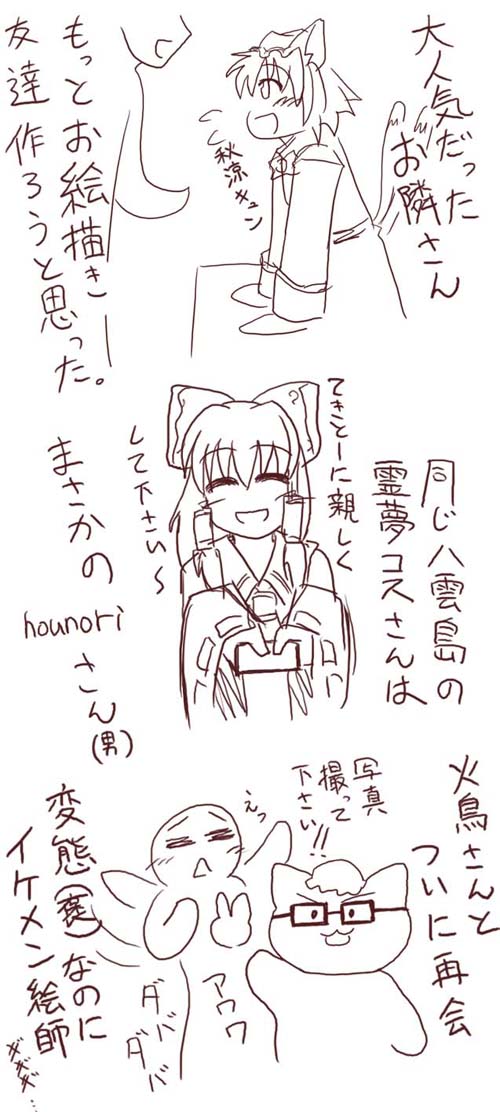 大人気だった
お隣さん
秋涼キュン
もっとお絵描き
友達作ろうと思った。
同じ八雲島の
霊夢コスさんは
てきとーに親しく
して下さい〜
まさかの
hounori
さん
(男)
火鳥さんと
ついに再会
写真
撮って
下さい!!
えっ
アワワ
ダバ
ダバ
変態
なのに
イケメン絵師
ギギギ…